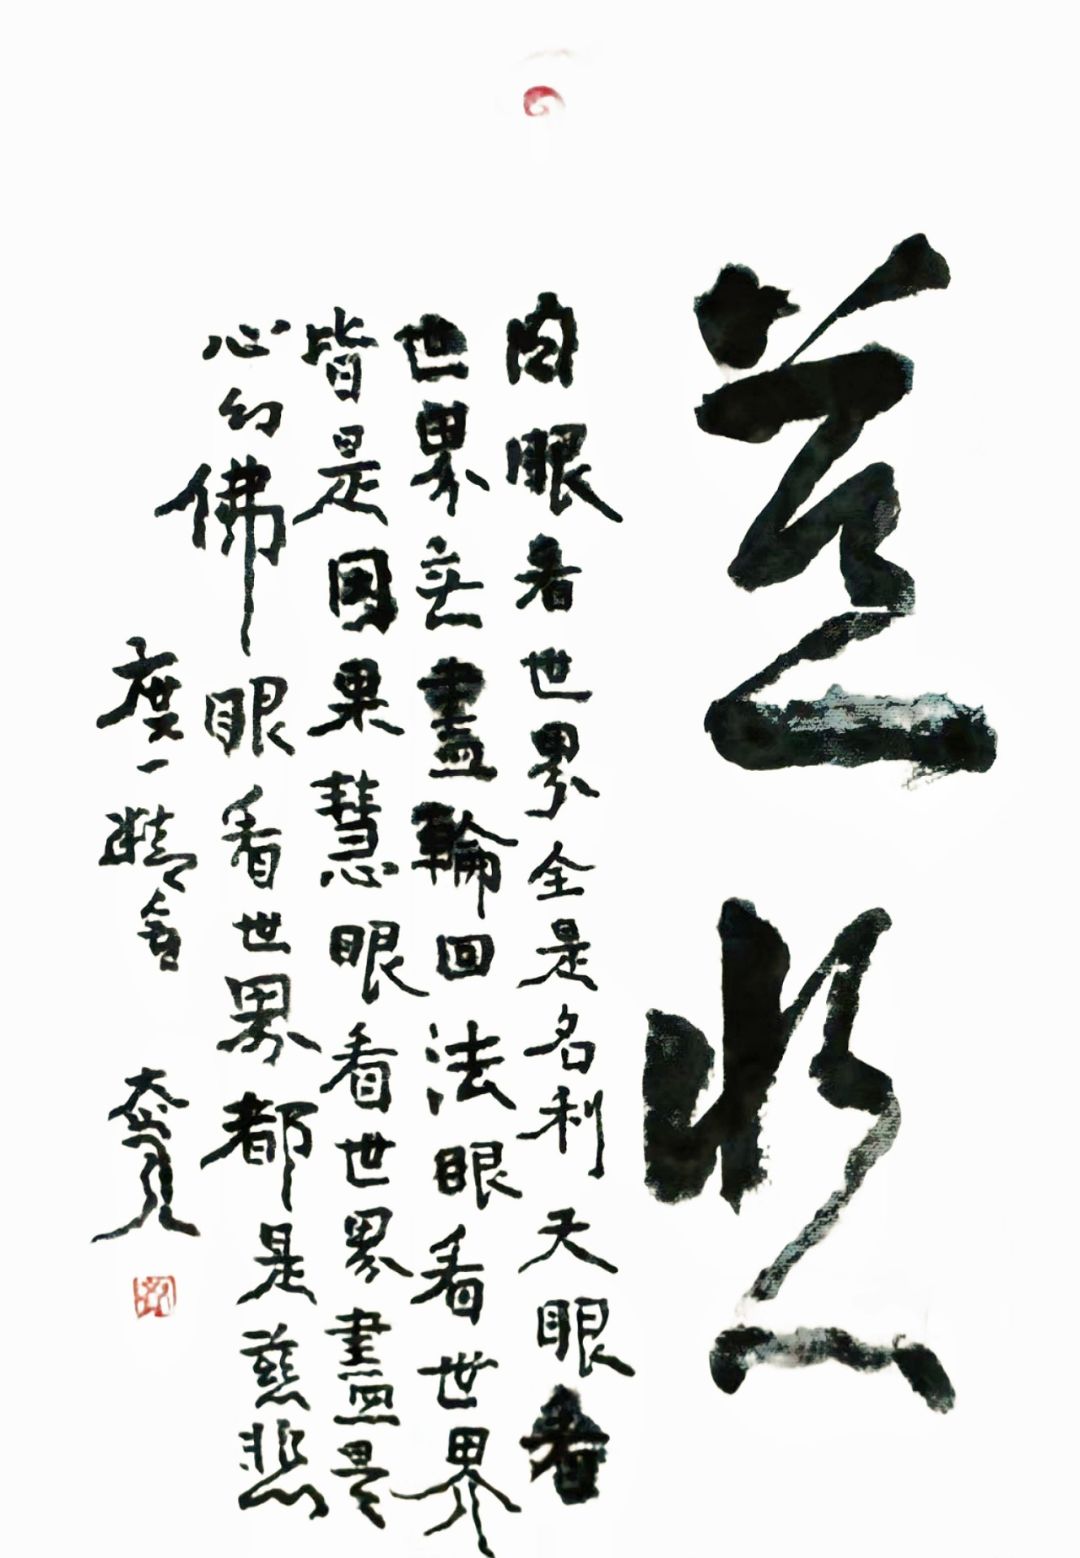 慈悲
肉眼看世界全是名利天眼看
世界無盡輪回法眼看世界
皆是因果慧眼看世界盡是
心幻佛眼看世界都是慈悲